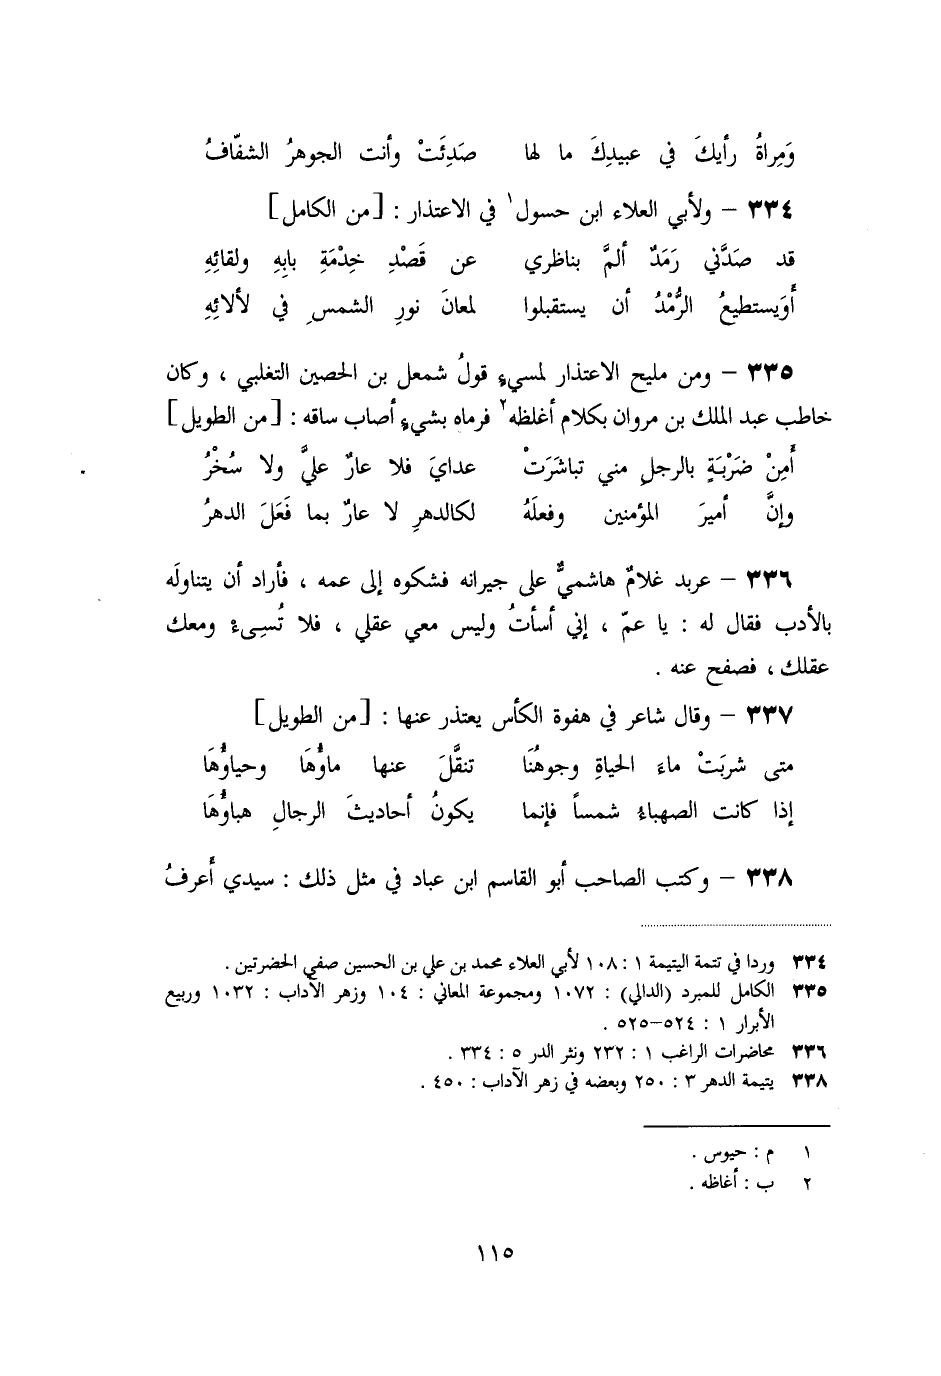 وَمِراةُ رأيكَ في عبيدِكَ ما لها صَدِئَتْ وأنت الجوهرُ الشفّافُ
٣٣٤ – ولأبي العلاء ابن حسول١ في الاعتذار : [من الكامل]
قد صَدَّني رَمَدٌ ألمَّ بناظري عن قَصْدِ خِدْمَةِ بابِهِ ولقائِهِ
أَوَيستطيعُ الرُّمْدُ أن يستقبلوا لمعانَ نورِ الشمسِ في لألائِهِ
٣٣٥ – ومن مليح الاعتذار لمسيءٍ قولُ شمعل بن الحصين التغلبي ، وكان
خاطب عبد الملك بن مروان بكلام أغلظه٢ فرماه بشيءٍ أصاب ساقه : [من الطويل]
أَمِنْ ضَرْبَةٍ بالرجلِ مني تباشَرَتْ عدايَ فلا عارٌ عليَّ ولا سُخْرُ
وإنَّ أميرَ المؤمنين وفعلَهُ لكالدهرِ لا عارٌ بما فَعَلَ الدهرُ
٣٣٦ – عربد غلامٌ هاشميٌّ على جيرانه فشكوه إلى عمه ، فأراد أن يتناولَه
بالأدب فقال له : يا عمّ ، إني أسأتُ وليس معي عقلي ، فلا تُسِىءْ ومعك
عقلك ، فصفح عنه .
٣٣٧ – وقال شاعر في هفوة الكأس يعتذر عنها : [من الطويل]
متى شربَتْ ماءَ الحياةِ وجوهُنَا تنقَّلَ عنها ماؤُهَا وحياؤُهَا
إذا كانت الصهباءُ شمساً فإنما يكونُ أحاديثَ الرجالِ هباؤُهَا
٣٣٨ – وكتب الصاحب أبو القاسم ابن عباد في مثل ذلك : سيدي أَعرفُ
٣٣٤ وردا في تتمة اليتيمة ١ : ١٠٨ لأبي العلاء محمد بن علي بن الحسين صفي الحضرتين .
٣٣٥ الكامل للمبرد (الدالي) : ١٠٧٢ ومجموعة المعاني : ١٠٤ وزهر الآداب : ١٠٣٢ وربيع
الأبرار ١ : ٥٢٤–٥٢٥ .
٣٣٦ محاضرات الراغب ١ : ٢٣٢ ونثر الدر ٥ : ٣٣٤ .
٣٣٨ يتيمة الدهر ٣ : ٢٥٠ وبعضه في زهر الآداب : ٤٥٠ .
١ م : حيوس .
٢ ب : أغاظه .
١١٥